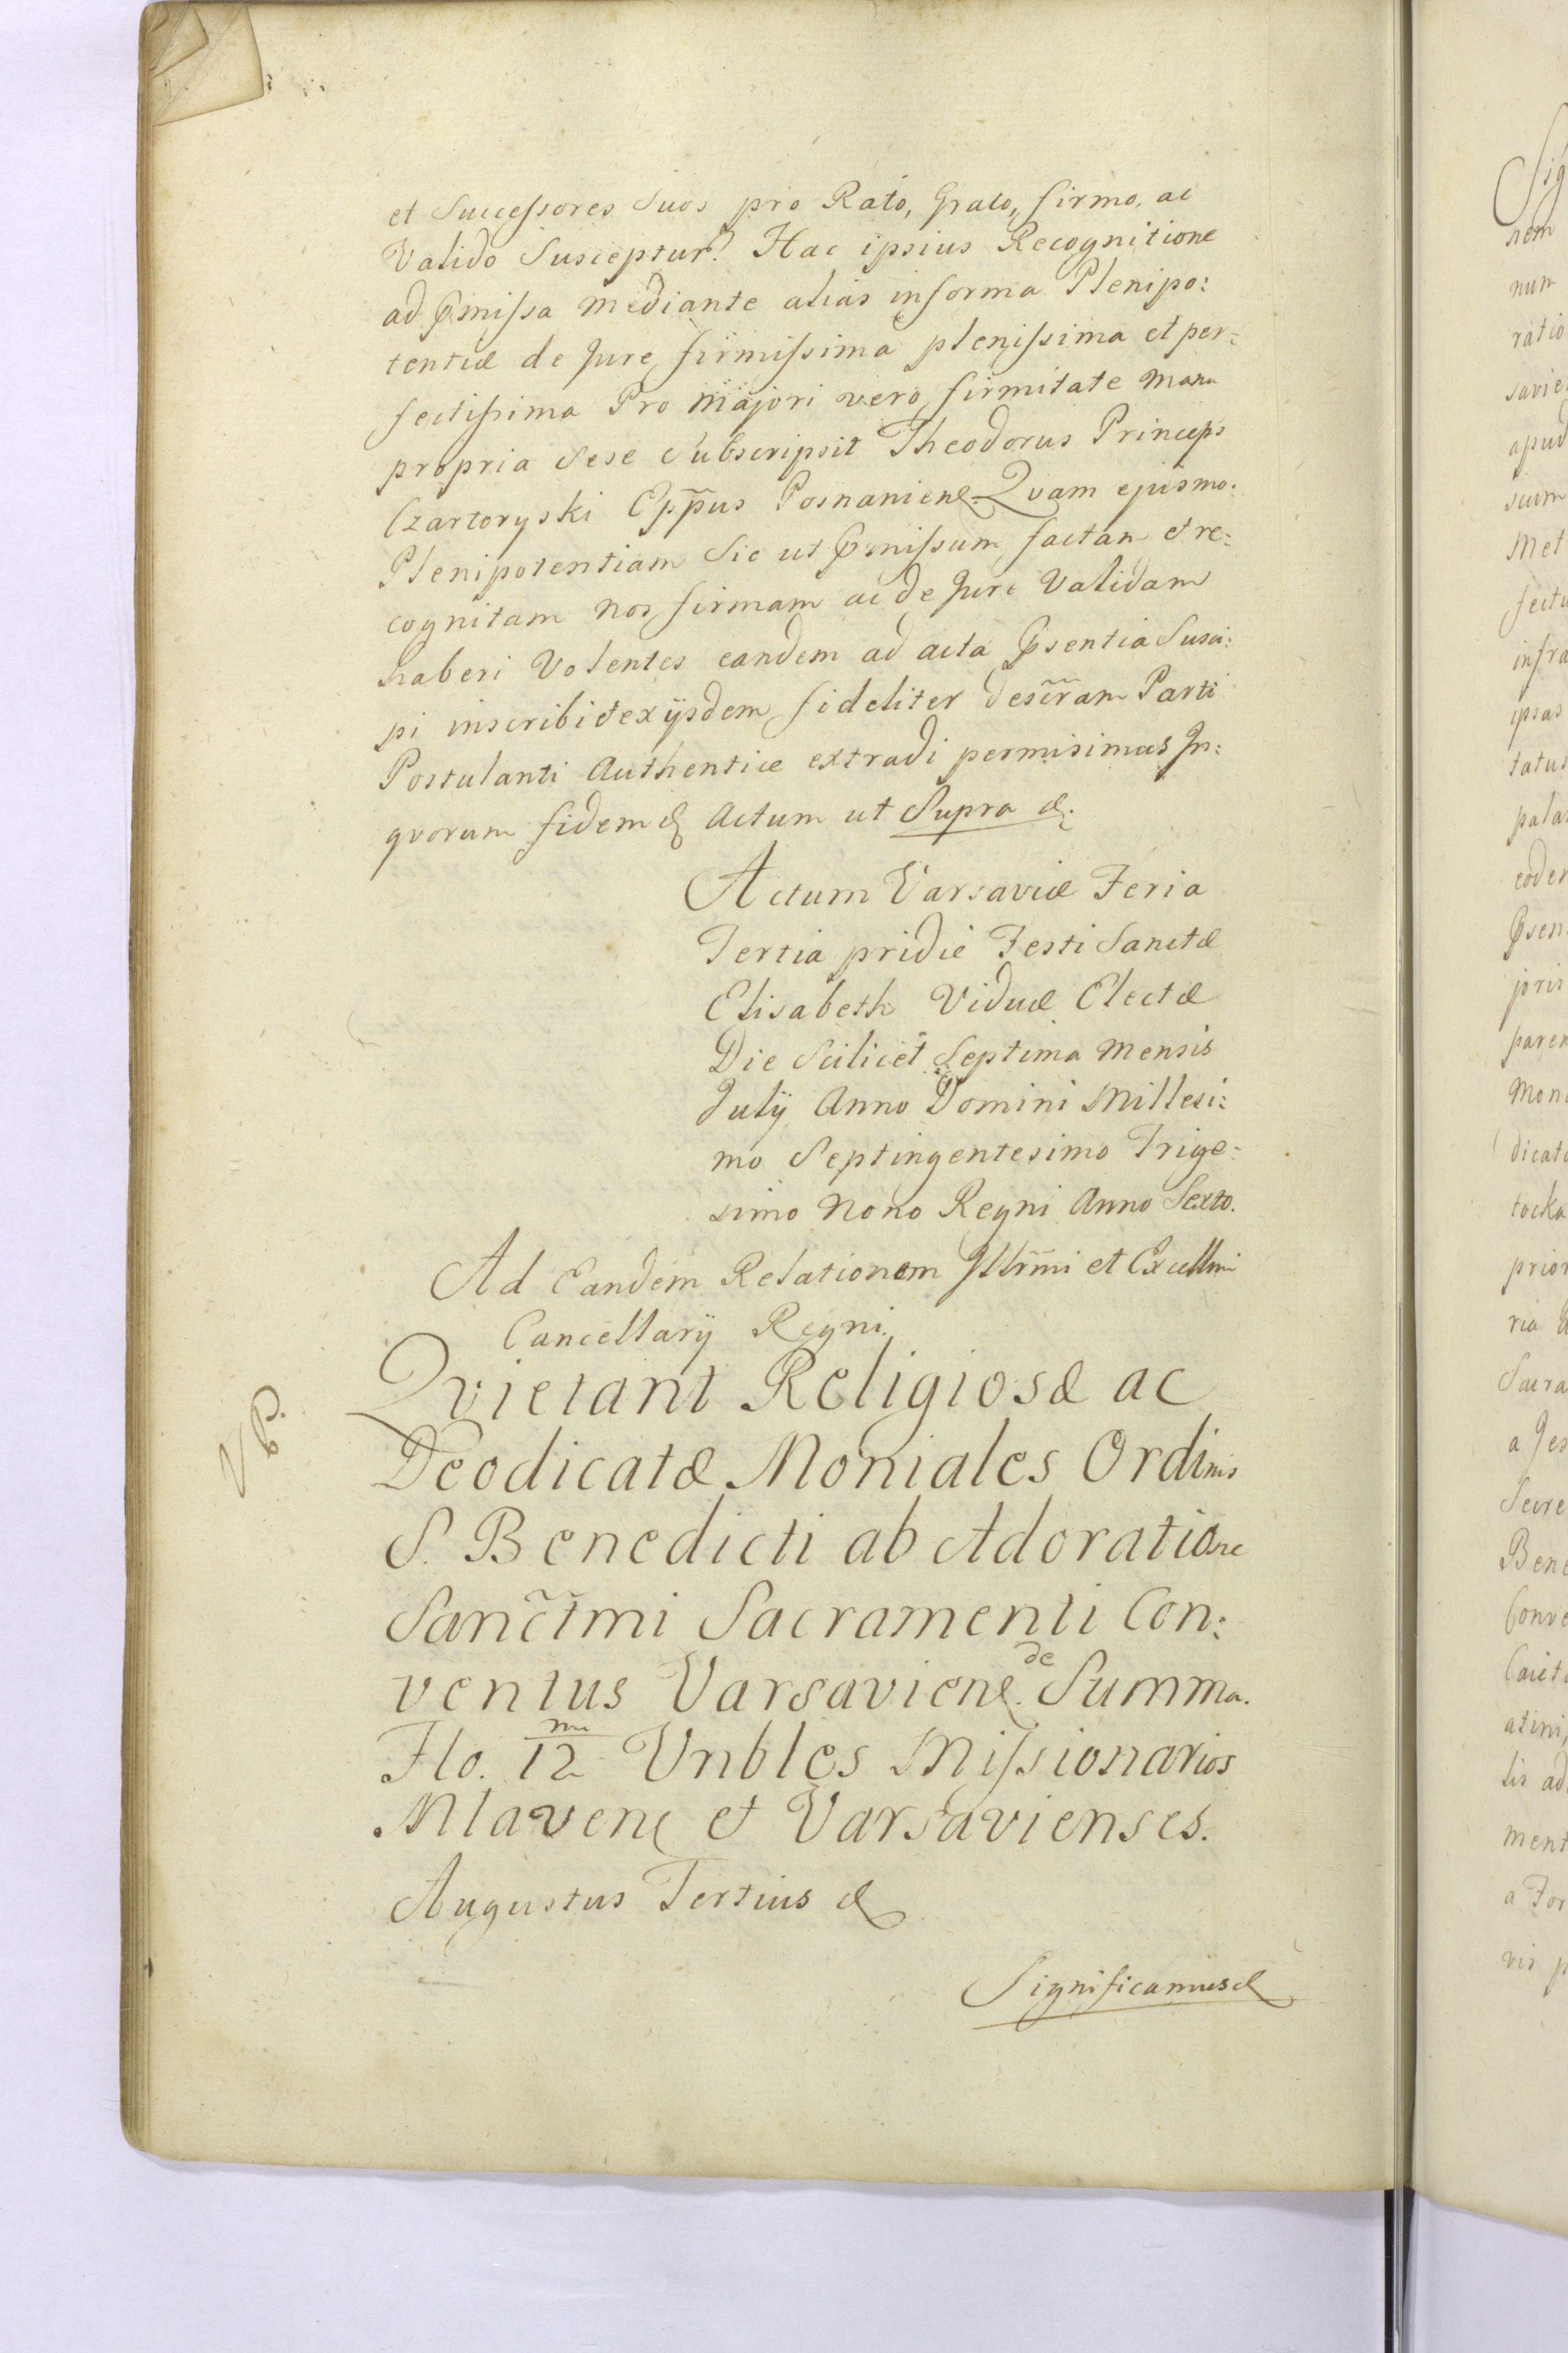 et Successores Suos pro Rato, Grato, firmo, ac
Valido Susceptur. Hac ipsius Recognitione
ad Pmissa mediante alias in forma Plenipo:
tentiæ de Jure firmissima plenissima et per:
fectissima Pro Majori vero firmitate Manu
propria Sese Subscripsit Theodorus Princeps
Czartoryski Epp̃us Posnanien. Qvam ejusmo.
Plenipotentiam Sic ut Pmissum factam et re:
cognitam nos firmam ac de Jure Validam
haberi Volentes eandem ad acta Psentia Susci:
pi inscribi et ex ijsdem fideliter descr̃am Parti
Postulanti Authentice extradi permisimus Jn:
qvorum fidem & Actum ut Supra &.
Actum Varsaviæ Feria
Tertia pridie Festi Sanctæ
Elisabeth Viduæ Electæ
Die Scilicet Septima Mensis
Julij Anno Domini Millesi:
mo Septingentesimo Trige:
simo Nono Regni Anno Sexto.
Ad Eandem Relationem Jllr̃mi et Excellmi
Cancellarij Regni.
NB.
Qvietant Religiosæ ac
Deodicatæ Moniales Ordinis
S. Benedicti ab Adoratione
Sanct̃mi Sacramenti Con:
ventus Varsavien. de Summa.
Flo. 12 m Vnbles Missionarios
Mlaven et Varsavienses.
Augustus Tertius &
Significamus &
Sig
nem
num
ratio
savie
apud
suum
Met
fectu
infra
ipsas
tatus
pala
eoder
Psen
joris
paren
Moni
dicat
tocka
prior
ria
Sacra
a Jes
Secre
Bene
Conve
Caiet
atini,
lis ad
ment
a For
vis p